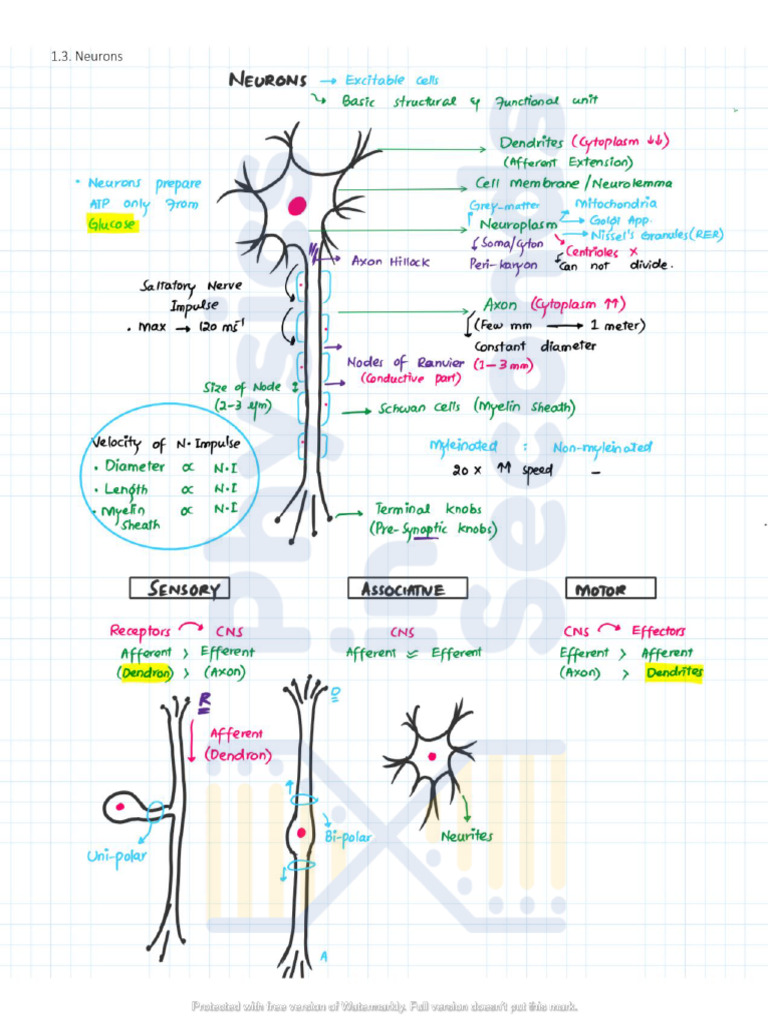 1.3. Neurons
NEURONS → Excitable cells
↳ Basic structural & Functional unit
Dendrites (Cytoplasm ↓↓)
(Afferent Extension)
Cell membrane/Neurolemma
• Neurons prepare
ATP only from
Glucose
Grey-matter
Mitochondria
Neuroplasm
→ Golgi App.
→ Nissel's Granules(RER)
Soma/Cyton
Centrioles x
Axon Hillock
Peri-karyon
Can not divide.
Saltatory Nerve
Impulse
• Max → 120 ms⁻¹
Axon (Cytoplasm ↑↑)
(Few mm → 1 meter)
Constant diameter
Nodes of Ranvier (1-3mm)
(Conductive part)
Size of Node
(2-3 µm)
Schwan cells (Myelin Sheath)
Velocity of N. Impulse
• Diameter ∝ N.I
• Length ∝ N.I
• Myelin ∝ N.I
Sheath
Myleinated : Non-myleinated
20 x ↑↑ speed –
Terminal knobs
(Pre-Synoptic knobs)
SENSORY
ASSOCIATIVE
MOTOR
Receptors → CNS
CNS
CNS → Effectors
Afferent > Efferent
Afferent ≈ Efferent
Efferent > Afferent
(Dendron) > (Axon)
(Axon) > Dendrites
R
D
Afferent
(Dendron)
Uni-polar
Bi-polar
Neurites
A
Physics in Seconds
Protected with free version of Watermarkly. Full version doesn't put this mark.